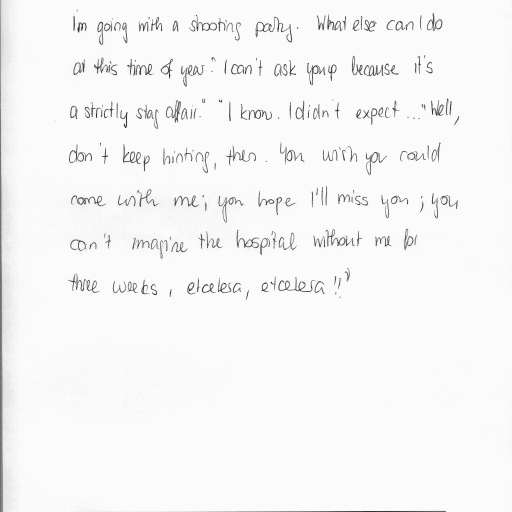 I'm going with a shooting party. What else can I do
at this time of year? I can't ask you up because it's
a strictly stag affair." "I know. I didn't expect ..." "Well,
don't keep hinting, then. You wish you could
come with me; you hope I'll miss you; you
can't imagine the hospital without me for
three weeks, etcetera, etcetera!!"